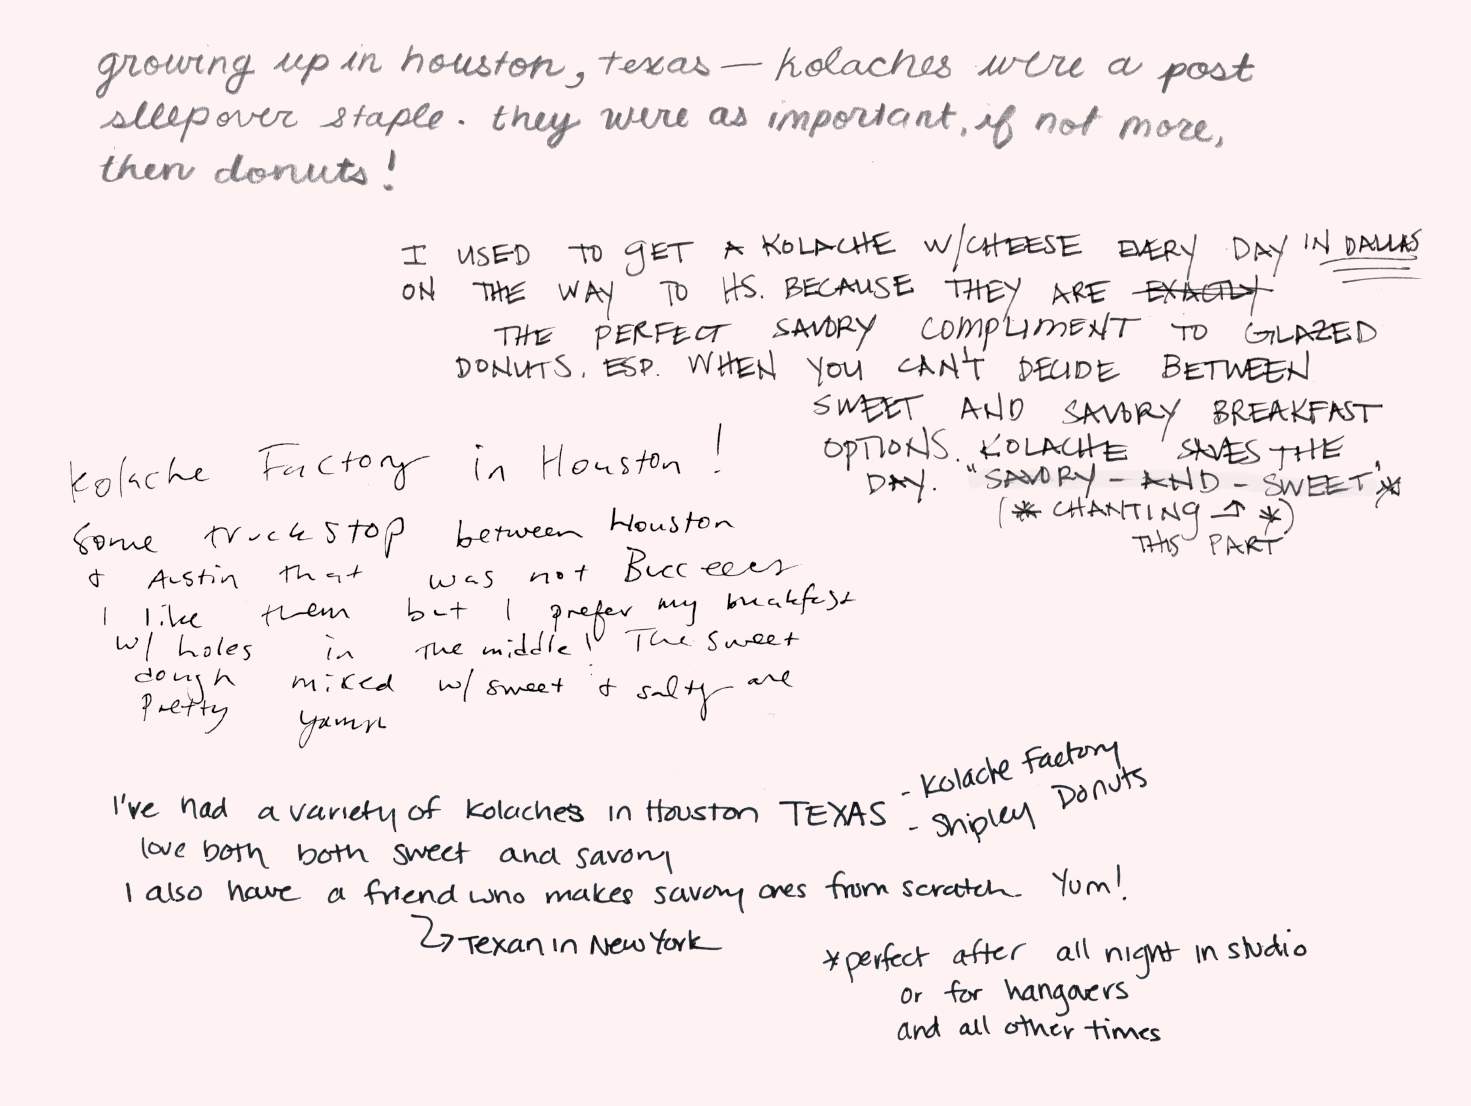 growing up in houston, texas — kolaches were a post
sleepover staple. they were as important, if not more,
then donuts!
I USED TO GET A KOLACHE W/CHEESE EVERY DAY IN DALLAS
ON THE WAY TO HS. BECAUSE THEY ARE EXACTLY
THE PERFECT SAVORY COMPLIMENT TO GLAZED
DONUTS, ESP. WHEN YOU CAN'T DECIDE BETWEEN
SWEET AND SAVORY BREAKFAST
OPTIONS. KOLACHE SAVES THE
DAY. "SAVORY - AND - SWEET"*
(* CHANTING ↑ *)
THIS PART
Kolache Factory in Houston!
Some truck stop between Houston
& Austin that was not Bucceees
I like them but I prefer my breakfast
w/ holes in the middle! The sweet
dough mixed w/ sweet & salty are
Pretty yumm
I've had a variety of kolaches in Houston TEXAS
- Kolache Factory
- Shipley Donuts
love both both sweet and savory
I also have a friend who makes savory ones from scratch. Yum!
↳ Texan in New York
*perfect after all night in studio
or for hangovers
and all other times